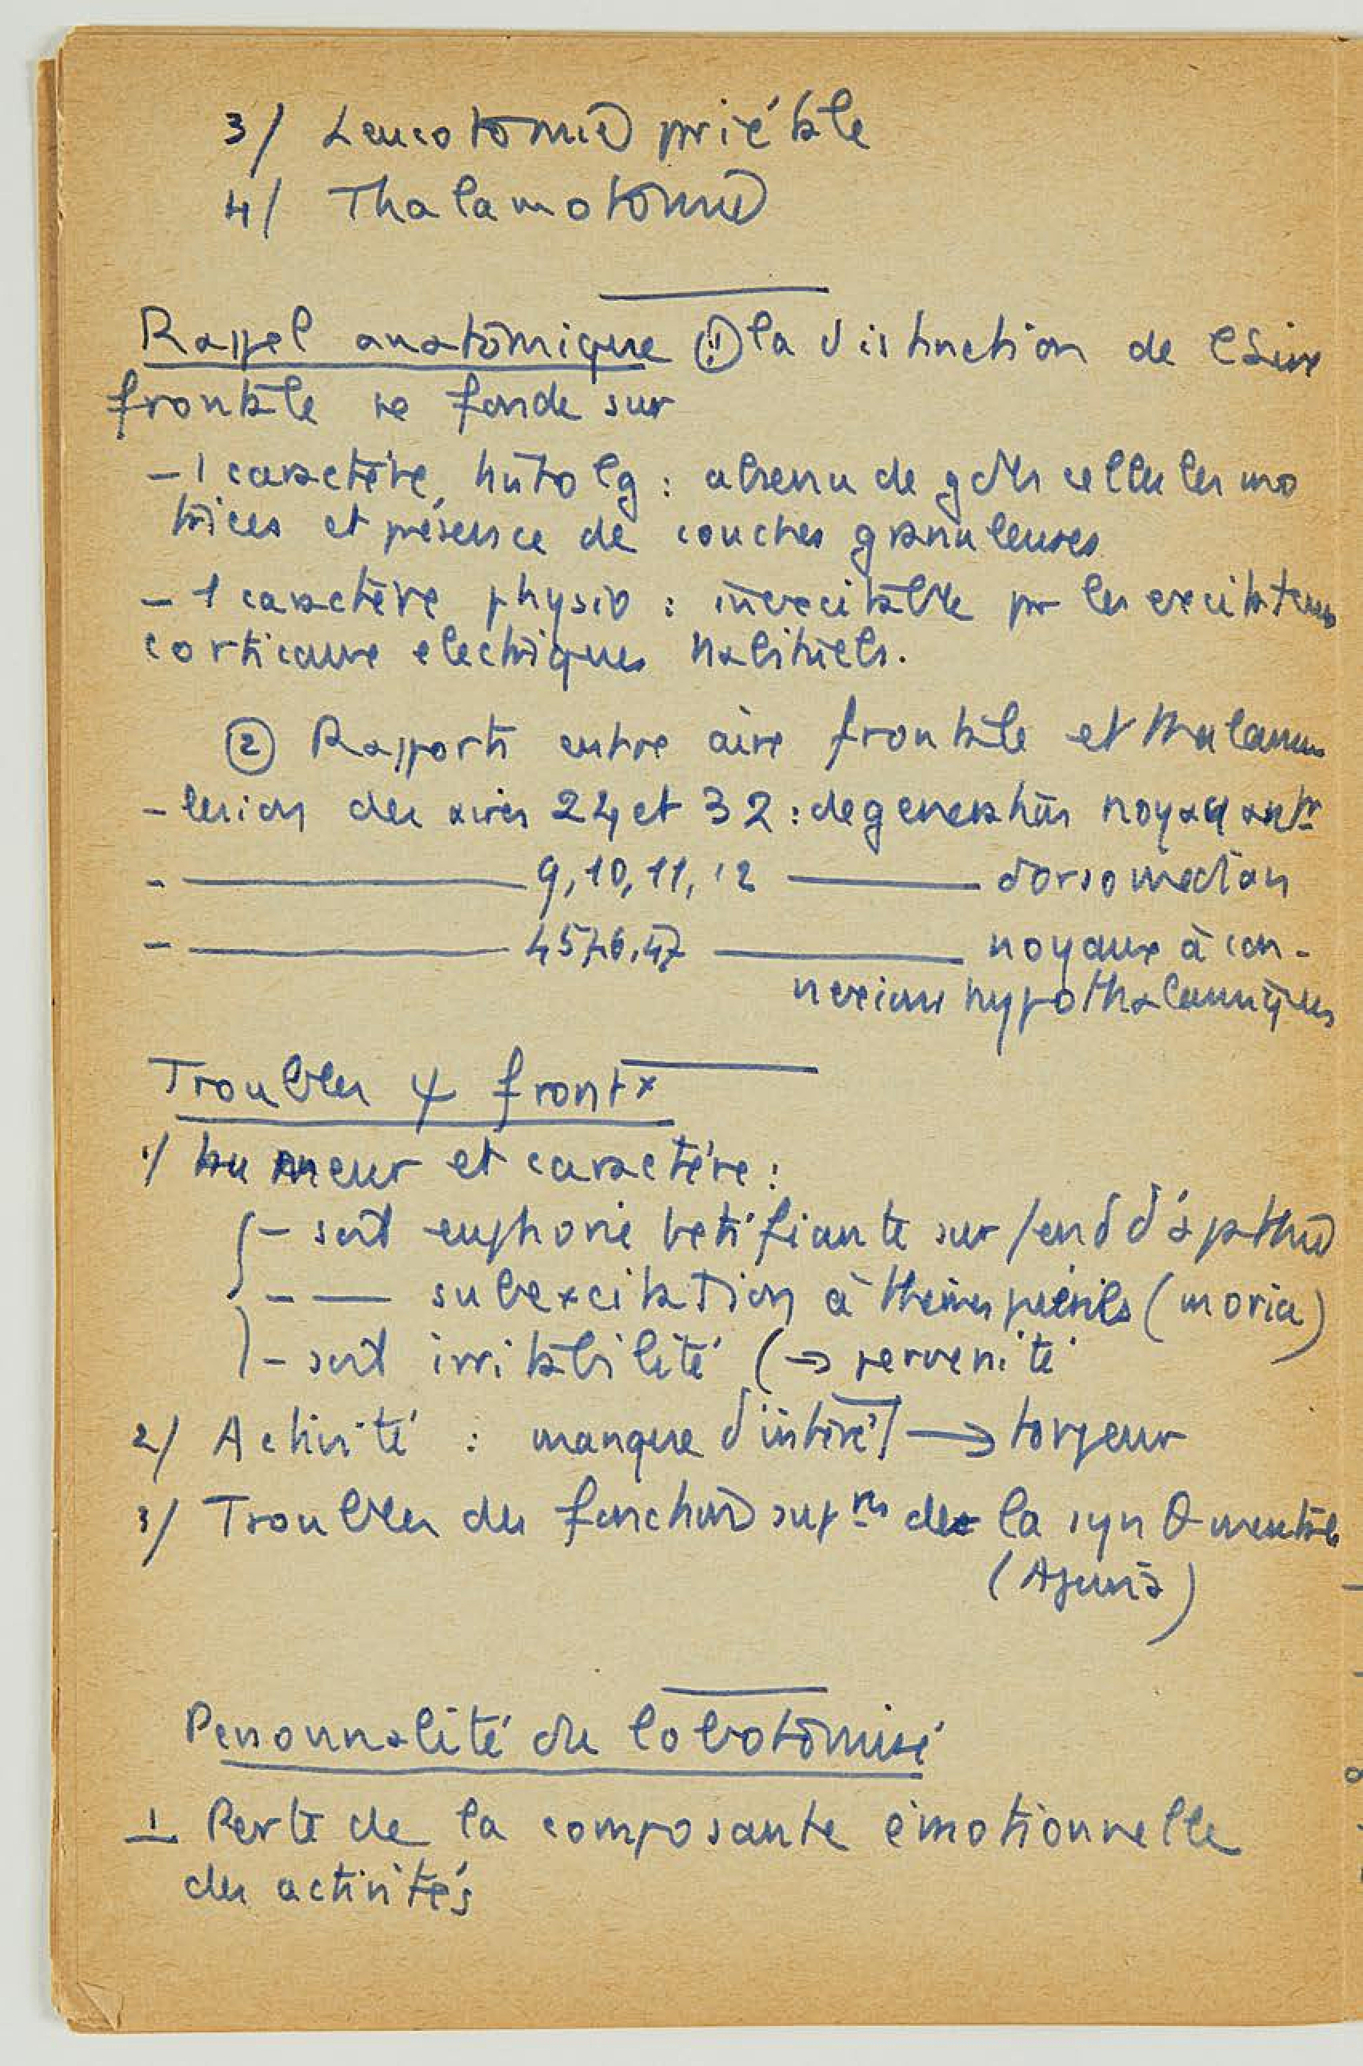 3/ Leucotomie pariétale
4/ Thalamotomie
Rappel anatomique ① la distinction de l'aire
frontale se fonde sur
- 1 caractère histolg : absence de gdes cellules mo
trices et présence de couches granuleuses
- 1 caractère physio : inexcitable par les excitateurs
corticaux electriques habituels.
② Rapports entre aire frontale et thalamus
- lésion des aires 24 et 32 : degeneration noyau antr
- 9, 10, 11, 12 dorsomedian
- 45, 46, 47 noyaux à con-
nexions hypothalamiques
Troubles ψ frontx
1/ humeur et caractère :
- soit euphorie bétifiante sur fond d'apathie
- subexcitation à thèmes puérils (moria)
- soit irritabilité (→ perversité
2) Activité : manque d'intérêt → torpeur
3/ Troubles des fonctions supres de la synθ mentale
(Ajuria)
Personnalité du lobotomisé
1 Perte de la composante émotionnelle
des activités